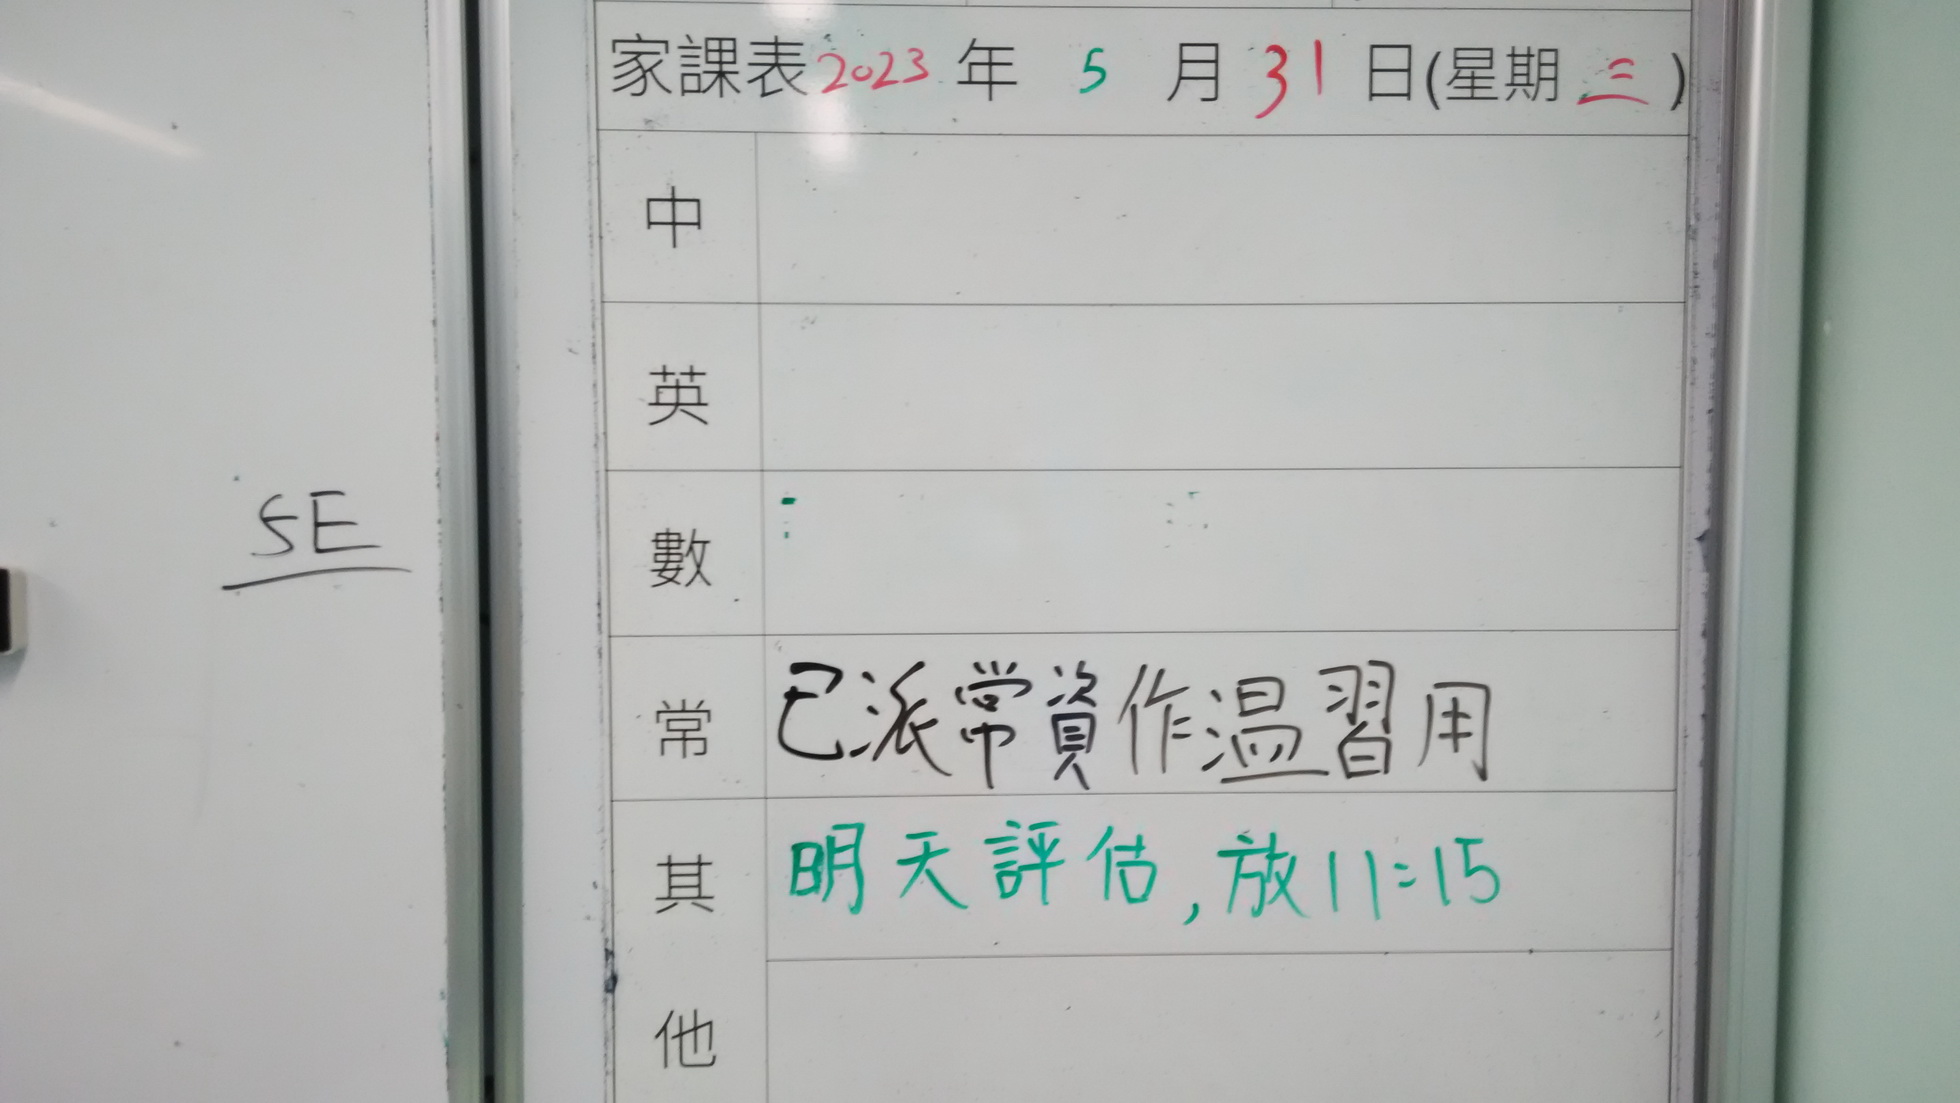 家課表2023年 5 月 31 日(星期 三 )
中
英
數
5E
常 已派常資作温習用
其 明天評估,放11:15
他